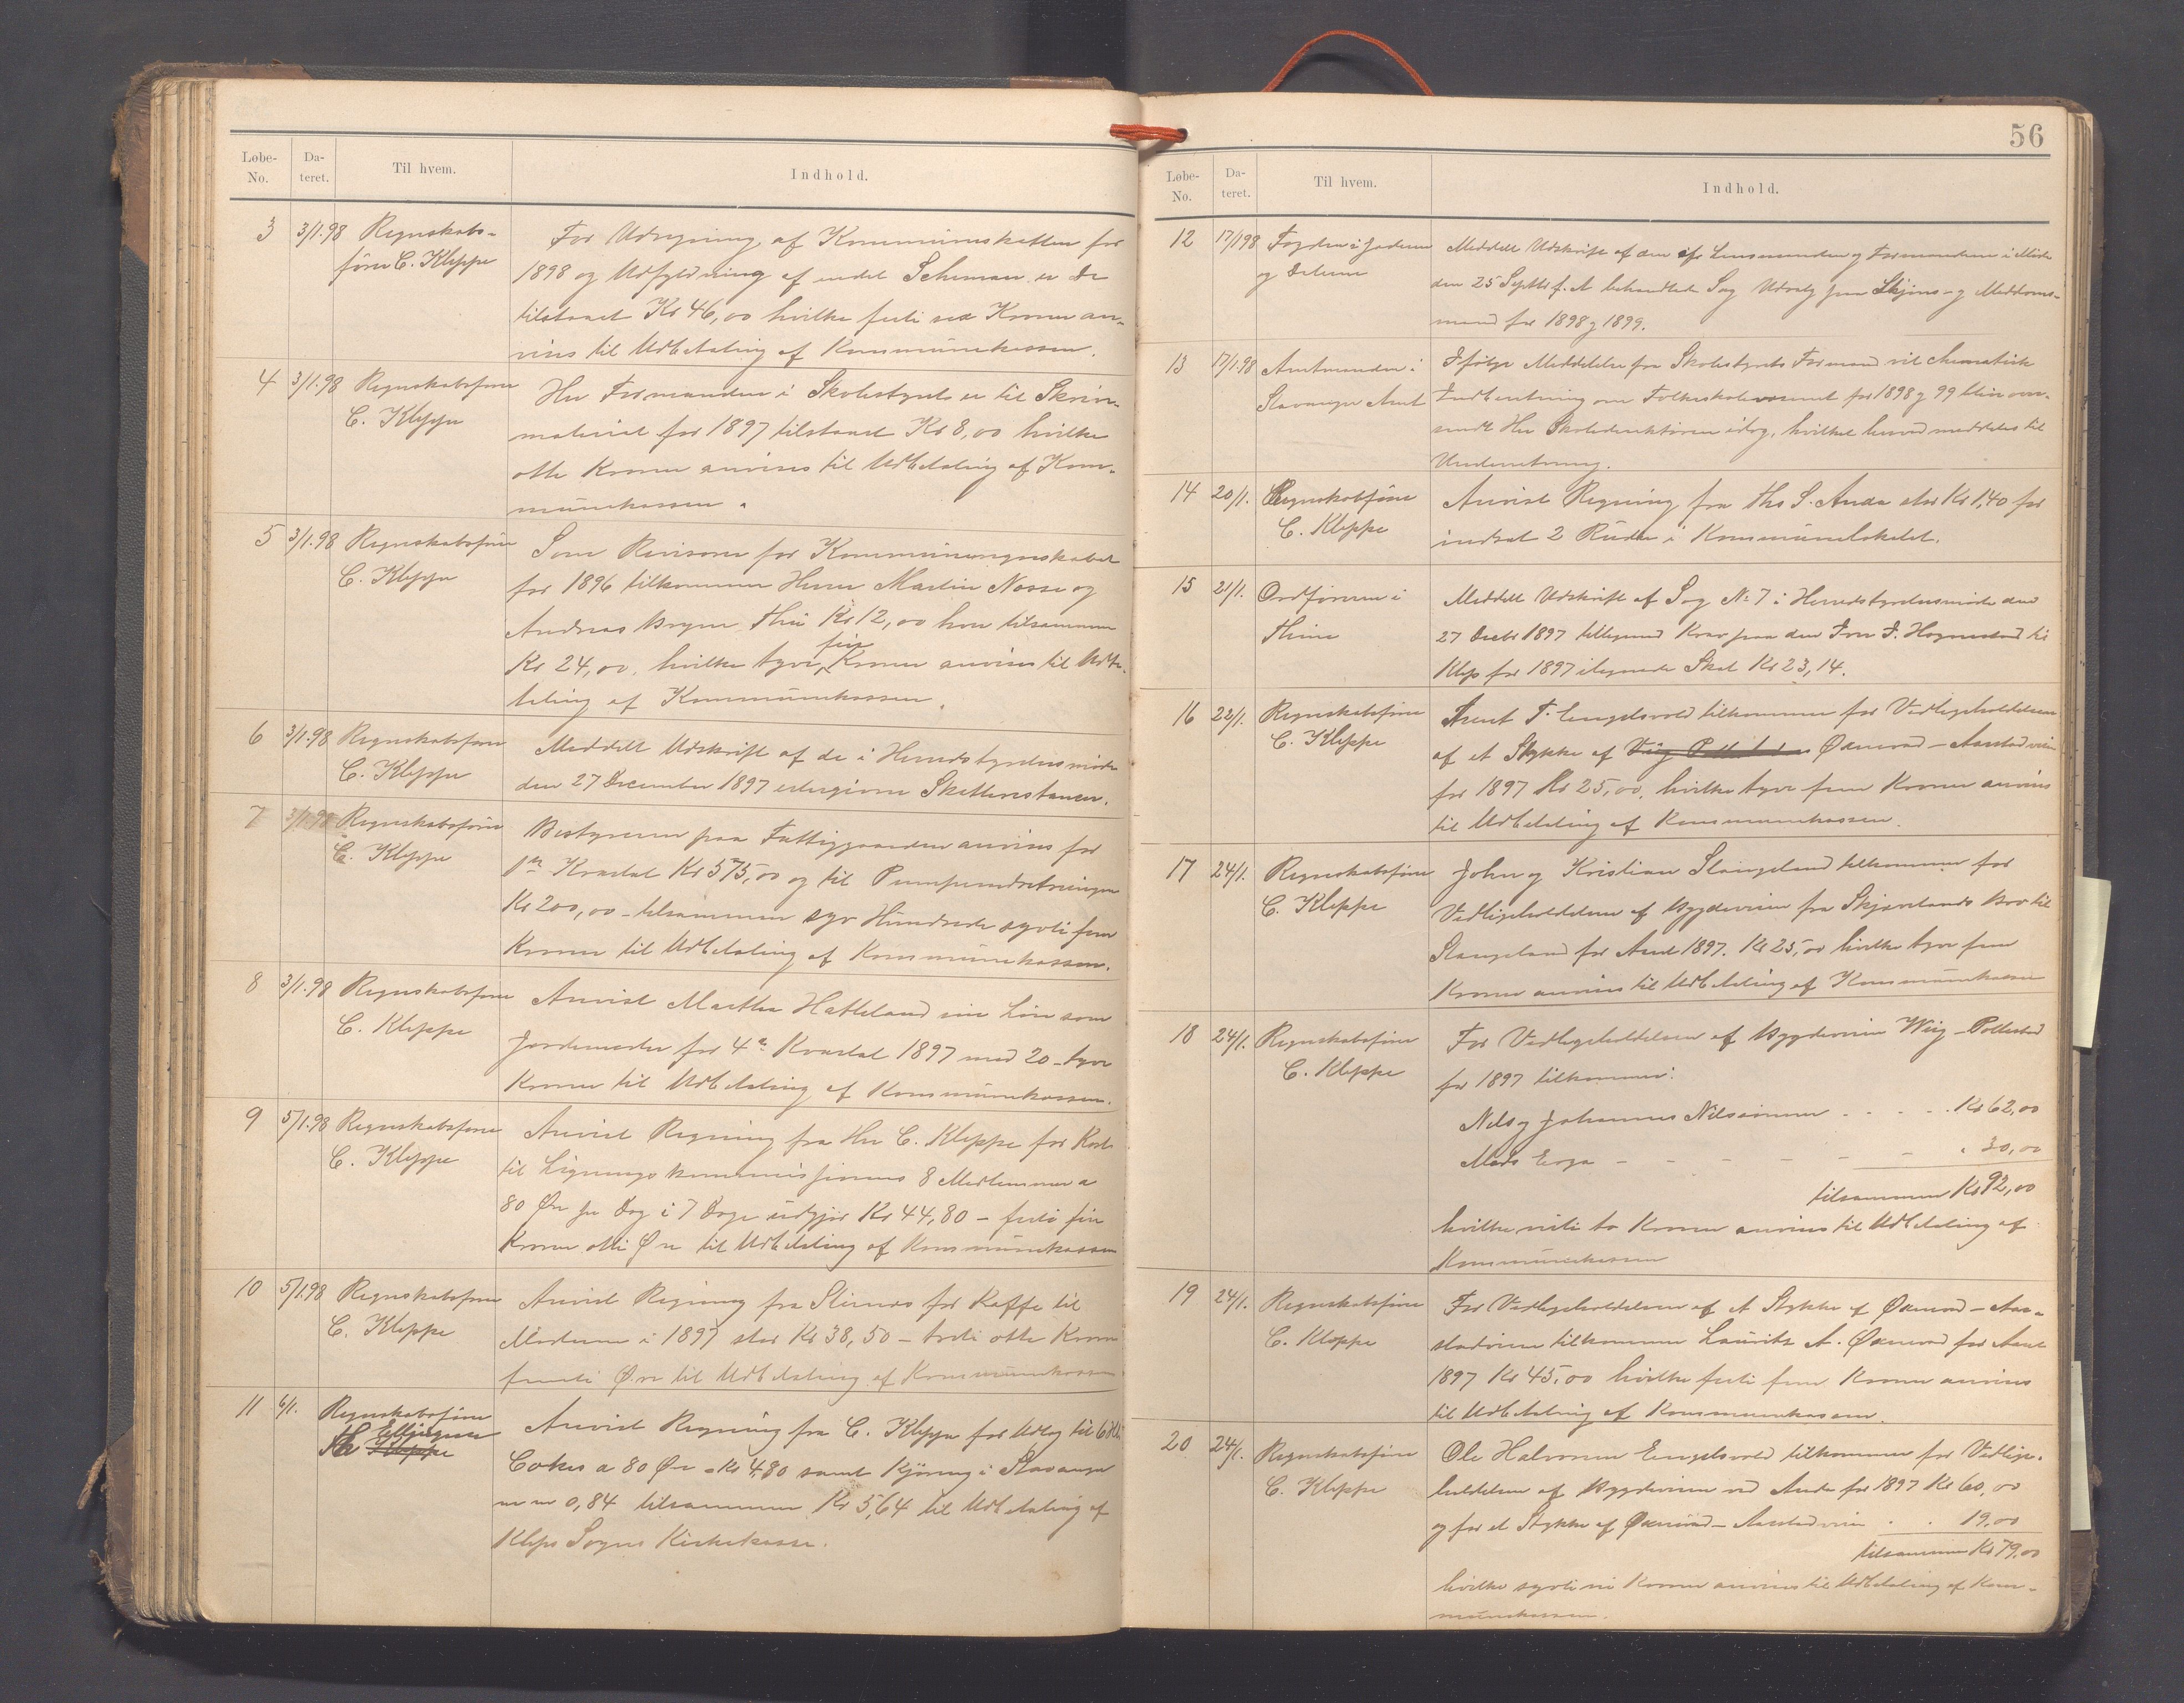 Løbe-No. Da-teret. Til hvem. Indhold.
3 3/1.98 Regnskabs-
fører C. Kleppe
For Udregning af Kommuneskatten for
1898 og Udfyldning af endel Schemaer er De
tilstaaet Kr 46,00 hvilke firti sex Kroner an-
vises til Udbetaling af Kommunekassen.
4 3/1.98 Regnskabsfører
C. Kleppe
Hr Formanden i Skolestyret er til Skriv-
material for 1897 tilstaaet Kr 8,00 hvilke
otte Kroner anvises til Udbetaling af Kom-
munekassen.
5 3/1.98 Regnskabsfører
C. Kleppe
Som Revisorer for Kommuneregnskabet
for 1896 tilkommer Herrer Martin Nosse og
Andreas Bryne Thu Kr 12,00 hver tilsammen
Kr 24,00, hvilke tyve fire Kroner anvises til Udbe-
taling af Kommunekassen.
6 3/1.98 Regnskabsfører
C. Kleppe
Meddelt Udskrift af de i Herredsstyrelsesmøde
den 27 December 1897 eftergivne Skatterestancer.
7 3/1.98 Regnskabsfører
C. Kleppe
Bestyreren paa Fattiggaarden anvises for
1ste Kvartal Kr 575,00 og til Pumpeindretningen
Kr 200,00 – tilsammen syv Hundrede sytti fem
Kroner til Udbetaling af Kommunekassen.
8 3/1.98 Regnskabsfører
C. Kleppe
Anvist Marthe Hatteland sin Løn som
Jordemoder for 4de Kvartal 1897 med 20 – tyve
Kroner til Udbetaling af Kommunekassen.
9 5/1.98 Regnskabsfører
C. Kleppe
Anvist Regning fra Hr C. Kleppe for Kost
til Ligningskommissionens 8 Medlemmer a
80 Øre pr Dag i 7 Dage udgjør Kr 44,80 – firti fire
Kroner otti Øre til Udbetaling af Kommunekassen
10 5/1.98 Regnskabsfører
C. Kleppe
Anvist Regning fra for Kaffe til
Møderne i 1897 stor Kr 38,50 – treti otte Kroner
femti Øre til Udbetaling af Kommunekassen
11 6/1. Regnskabsfører
Kleppe
Anvist Regning fra C. Kleppe for Udlæg til 6
Cokes a 80 Øre = Kr 4,80 samt Kjøring i Stavanger
0,84 tilsammen Kr 5,64 til Udbetaling af
Klep Sogns Kirkekasse.
56
Løbe-No. Da-teret. Til hvem. Indhold.
12 17/1 98 Fogden i Jæderen
og Dalerne
Meddelt Udskrift af den af Lensmanden og Formændene i Møde
den 25 Septbr f. A behandlede Sag Udvalg paa Skjøns- og Meddoms-
mænd for 1898 og 1899.
13 17/1.98 Amtmanden i
Stavanger Amt
Ifølge Meddelelse fra Skolestyrets Formand vil schematisk
Indberetning om Folkeskolevæsenet for 1898 og 99 blive over-
sendt Hr Skoledirektøren idag, hvilket herved meddeles til
Underretning.
14 20/1. Regnskabsfører
C. Kleppe
Anvist Regning fra Ths S. Anda stor Kr 1,40 for
indsat 2 Ruder i Kommunelokalet.
15 21/1. Ordføreren i
Thime
Meddelt Udskrift af Sag No 7 i Herredsstyrelsesmøde den
27 Decbr 1897 Krav paa den Fru J. Hognestad til
Klep for 1897 ilignede Skat Kr 23,14.
16 22/1. Regnskabsfører
C. Kleppe
T. Engelsvold tilkommer for Vedligeholdelsen
af et Stykke af Øxnevad – Aarstadveien
for 1897 Kr 25,00, hvilke tyve fem Kroner anvises
til Udbetaling af Kommunekassen.
17 24/1. Regnskabsfører
C. Kleppe
John og Kristian Stangeland tilkommer for
Vedligeholdelsen af Bygdeveien fra Skjævelands Bro til
Stangeland for Aaret 1897. Kr 25,00 hvilke tyve fem
Kroner anvises til Udbetaling af Kommunekassen
18 24/1. Regnskabsfører
C. Kleppe
For Vedligeholdelsen af Bygdeveien Wiig – Pollestad
for 1897 tilkommer:
Nels og Johannes Nilsen . . . . . Kr 62,00
Mads Erga – – – – – – " 30,00
tilsammen Kr 92,00
hvilke nitti to Kroner anvises til Udbetaling af
Kommunekassen
19 24/1. Regnskabsfører
C. Kleppe
For Vedligeholdelsen af et Stykke af Øxnevad – Aar-
stadveien tilkommer Lauritz A. Øxnevad for Aaret
1897 Kr 45,00 hvilke firti fem Kroner anvises
til Udbetaling af Kommunekassen.
20 24/1. Regnskabsfører
C. Kleppe
Ole Halvorsen Engelsvold tilkommer for Vedlige-
holdelsen af Bygdeveien ved Anda for 1897 Kr 60,00
og for et Stykke af Øxnevad – Aarstadveien . . 19,00
tilsammen Kr 79,00
hvilke sytti ni Kroner anvises til Udbetaling af Kom-
munekassen.